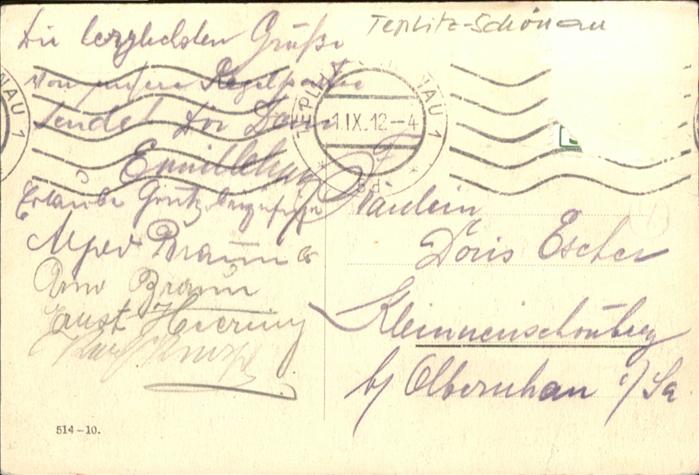 Die herzlichsten Grüße
von unserer Kegelpartie
sendet Dir Dein
Emil
Erlaube Gruß beizufügen
Alfred Braun
Arno Braun
Ernst Hiering
Karl
Teplitz-Schönau
TEPLITZ-SCHÖNAU 1
1.IX.12-4
Fräulein
Doris Escher
Kleinneuschönberg
b/ Olbernhau i/Sa.
514-10.